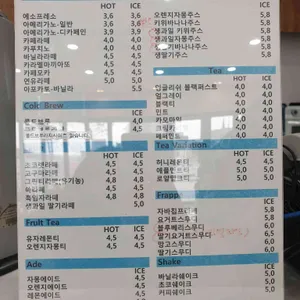 HOT ICE
에스프레소 3,6 3,6
아메리카노-일반 3,6 3,6
아메리카노-디카페인 3,9 3,9
카페라떼 4,0 4,0
카푸치노 4,0 4,0
바닐라라떼 4,5 4,5
카라멜마끼아또 4,5 4,5
카페모카 4,5 4,5
연유라떼 5,0 5,0
아포카토-바닐라 5,5
Cold Brew
ICE
4,0
4,5
HOT ICE
초코라떼 4,5 4,5
고구마라떼 4,5 4,5
그린티라떼(유기농) 4,8 4,8
4,5 4,5
흑임자라떼 4,8 4,8
생과일 딸기라떼 5,5
Fruit Tea
HOT ICE
유자레몬티 4,5 4,5
오렌지자몽티 4,5 4,5
Ade
ICE
자몽에이드 4,5
오렌지에이드 4,5
레몬에이드
ICE
오렌지자몽주스 5,8
키위바나나주스 5,8
생과일 키위주스 5,8
생과일자몽주스 5,8
바나나주스 5,5
생딸기주스
Tea
HOT ICE
잉글리쉬 블랙퍼스트 4,0 4,0
얼그레이 4,0 4,0
블랙티 4,0 4,0
민트 4,0 4,0
카모마일 4,0 4,0
4,0 4,0
페퍼민트 4,0 4,0
Tea Variation
HOT ICE
허니레몬티 4,5 4,5
애플민트티 4,5 5,0
로얄밀크티 5,0 5,0
Frappe
ICE
자바칩프라페 5,8
요거트스무디 5,8
블루베리스무디 6,0
딸기요거트스무디 6,0
망고스무디 6,0
딸기스무디 6,0
Shake
ICE
바닐라쉐이크 5,0
초코쉐이크 5,0
커피쉐이크